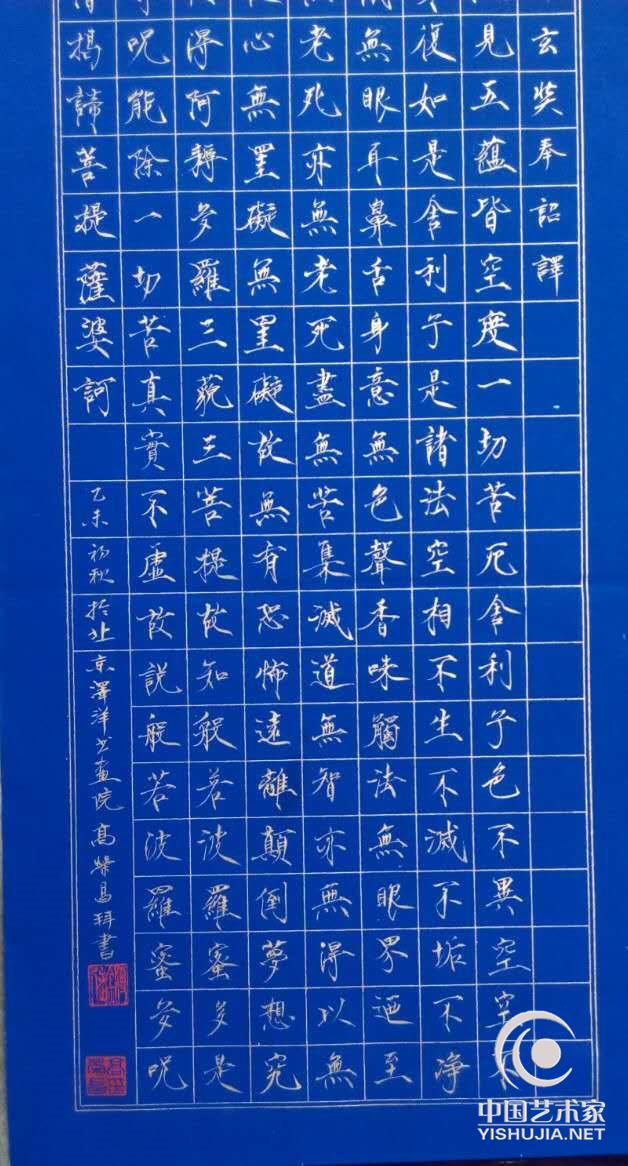 玄奘奉詔譯
見五蘊皆空度一切苦厄舍利子色不異空空不
復如是舍利子是諸法空相不生不滅不垢不淨
無眼耳鼻舌身意無色聲香味觸法無眼界迺至
老死亦無老死盡無苦集滅道無智亦無得以無
心無罣礙無罣礙故無有恐怖遠離顛倒夢想究
得阿耨多羅三藐三菩提故知般若波羅蜜多是
呪能除一切苦真實不虛故說般若波羅蜜多呪
揭諦菩提薩婆訶
乙未初秋於北京澤洋书畫院高榮昌拜書
中国艺术家
YISHUJIA.NET